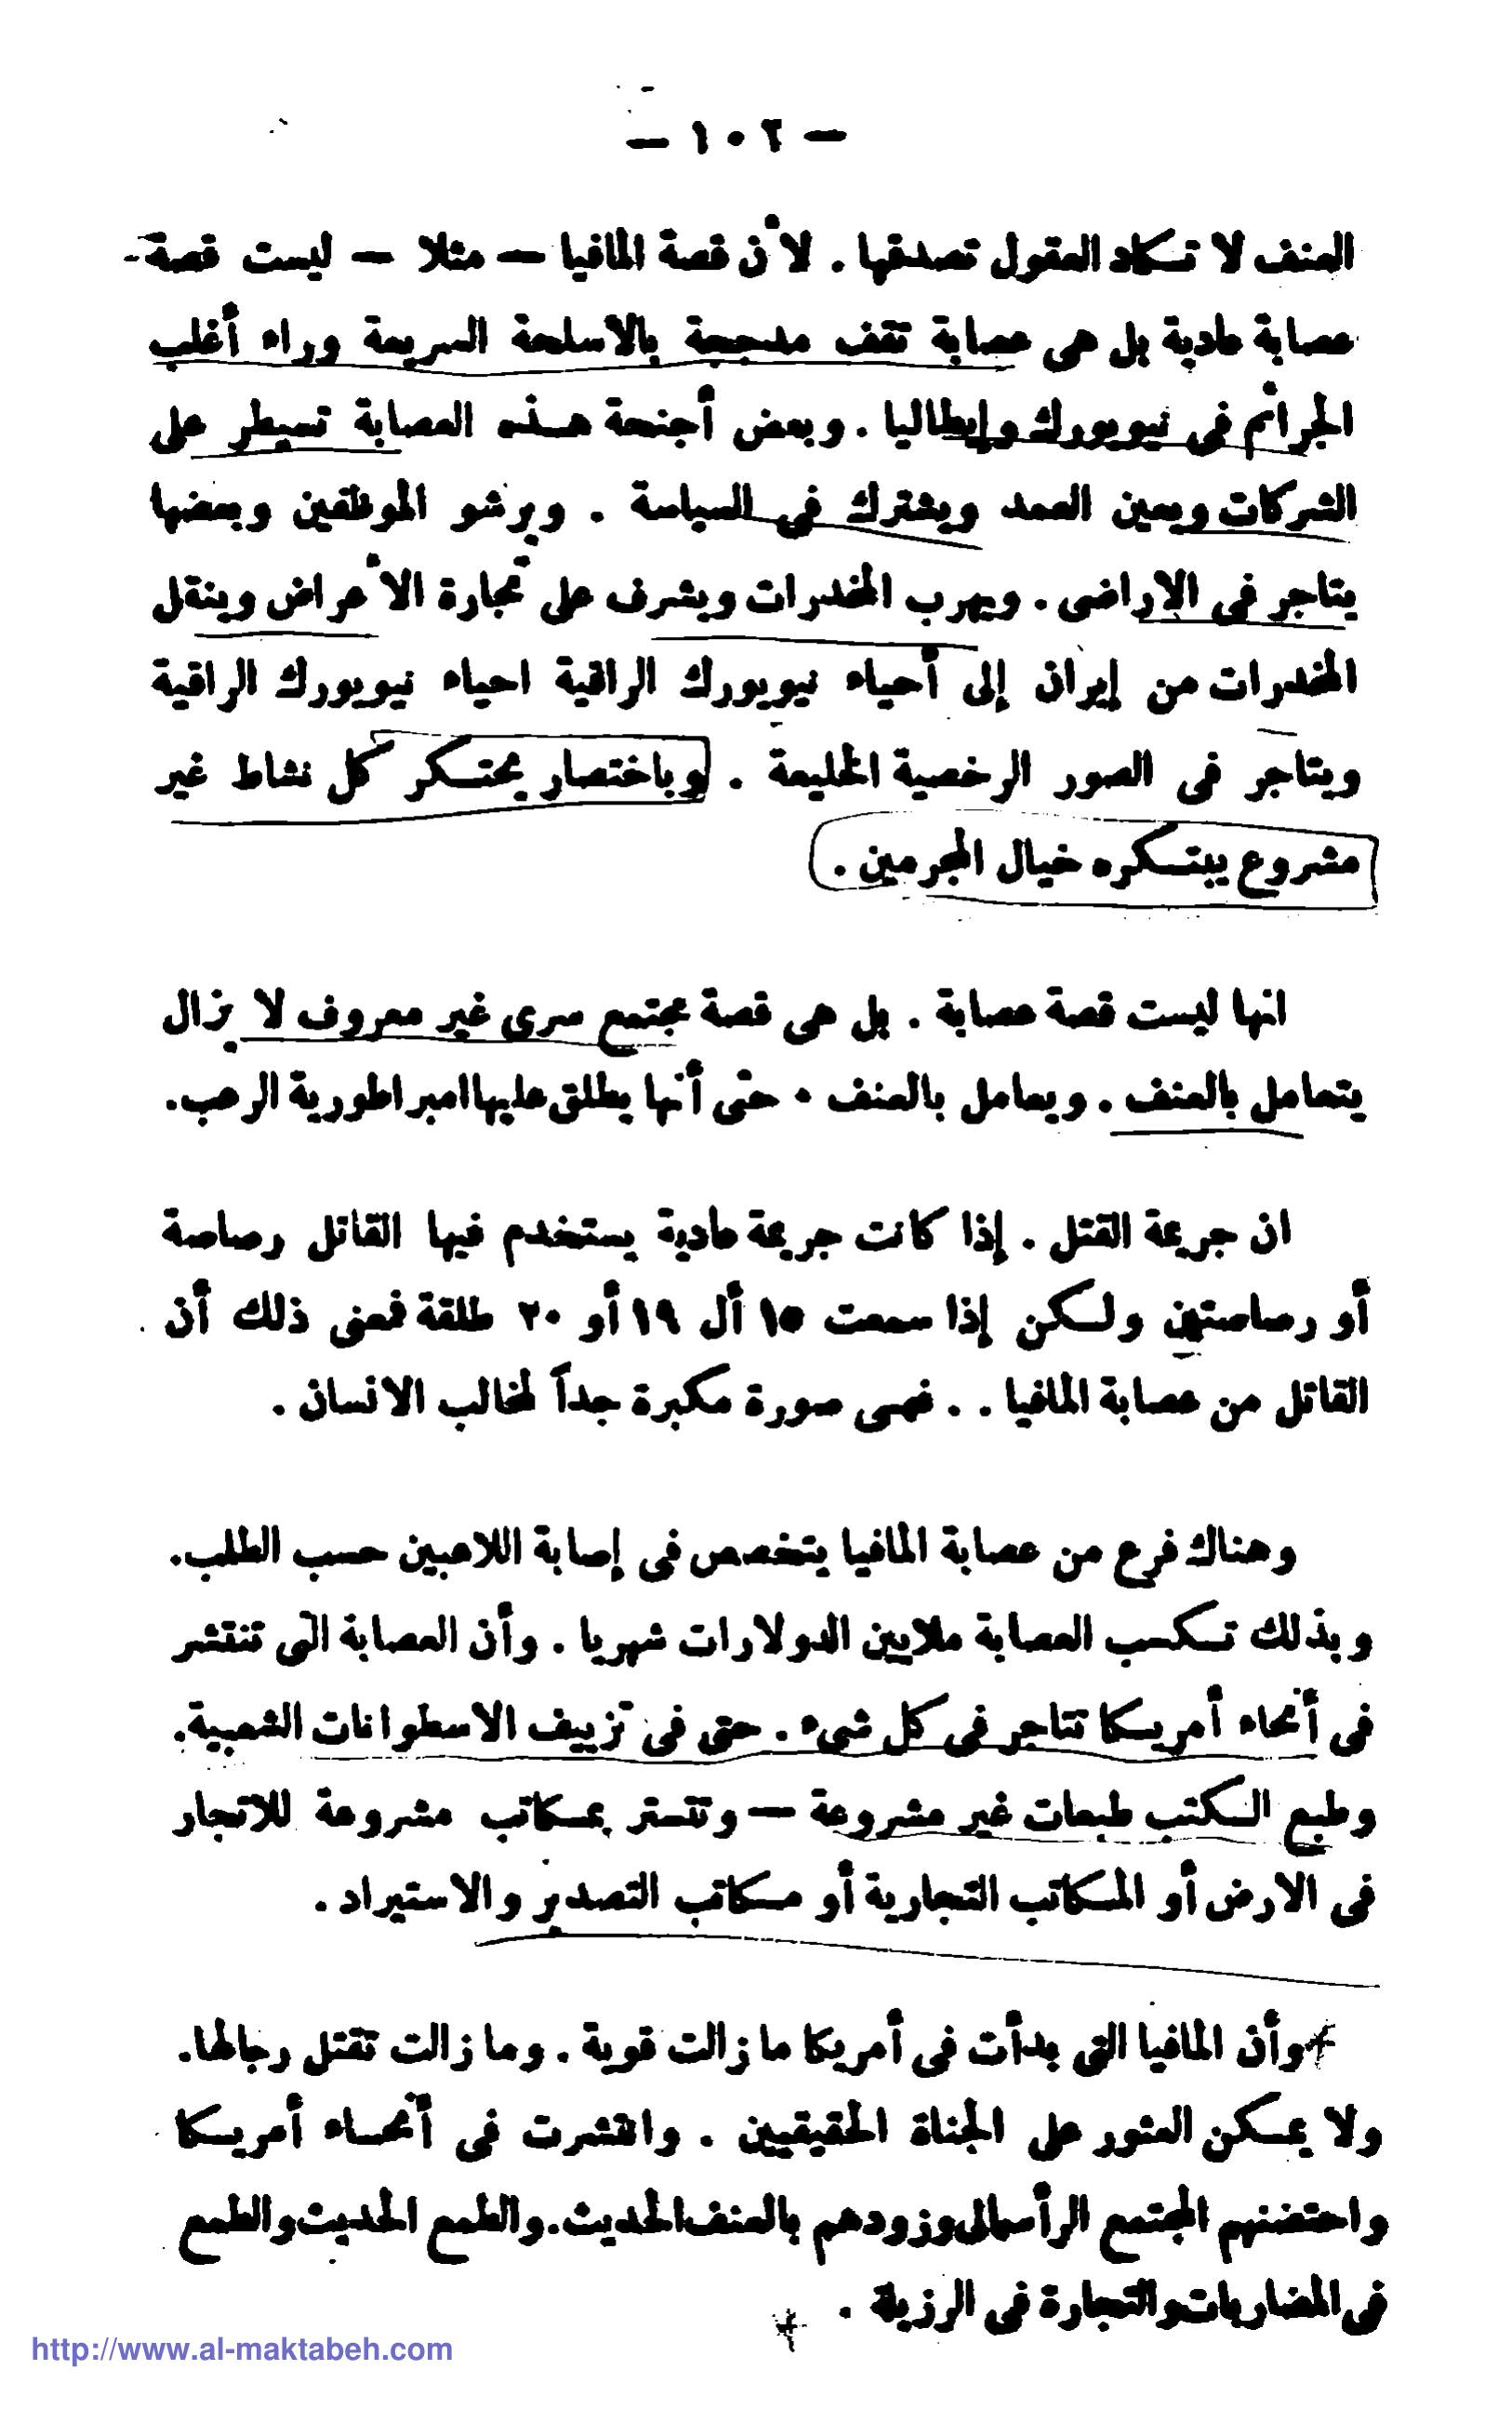 — ١٠٢ —
العنف لا تكاد العقول تصدقها . لأن قصة المافيا — مثلا — ليست قصة
عصابة عادية بل هى عصابة تقف مدججة بالاسلحة السريعة وراء أغلب
الجرائم فى نيويورك وإيطاليا . وبعض أجنحة هذه العصابة تسيطر على
الشركات ويعين العمد ويشترك فى السياسة . ويرشو الموظفين وبعضها
يتاجر فى الاراضى . ويهرب المخدرات ويشرف على تجارة الأعراض وينقل
المخدرات من إيران إلى أحياء نيويورك الراقية احياء نيويورك الراقية
ويتاجر فى الصور الرخصية الخليعة . وباختصار يحتكر كل نشاط غير
مشروع يبتكره خيال المجرمين .
انها ليست قصة عصابة . بل هى قصة مجتمع سرى غير معروف لا يزال
يتعامل بالعنف . ويعامل بالعنف . حتى أنها يطلق عليها امبراطورية الرعب .
ان جريمة القتل . إذا كانت جريمة عادية يستخدم فيها القاتل رصاصة
أو رصاصتين ولكن إذا سمعت ١٥ أل ١٩ أو ٢٠ طلقة فمعنى ذلك أن
القاتل من عصابة المافيا . . فهى صورة مكبرة جداً لمخالب الانسان .
وهناك فرع من عصابة المافيا يتخصص فى إصابة اللاعبين حسب الطلب .
وبذلك تكسب العصابة ملايين الدولارات شهريا . وأن العصابة التى تنتشر
فى أنحاء أمريكا تتاجر فى كل شىء . حتى فى تزييف الاسطوانات الشعبية .
وطبع الكتب طبعات غير مشروعة — وتتستر بمكاتب مشروعة للاتجار
فى الارض أو المكاتب التجارية أو مكاتب التصدير والاستيراد .
وأن المافيا التى بدأت فى أمريكا ما زالت قوية . وما زالت تقتل رجالها .
ولا يمكن العثور على الجناة الحقيقيين . وانتشرت فى أنحاء أمريكا
واحتضنهم المجتمع الرأسمالى وزودهم بالعنف الحديث . والطمع الحديث والطمع
فى المضاربات والتجارة فى الرزيلة .
http://www.al-maktabeh.com